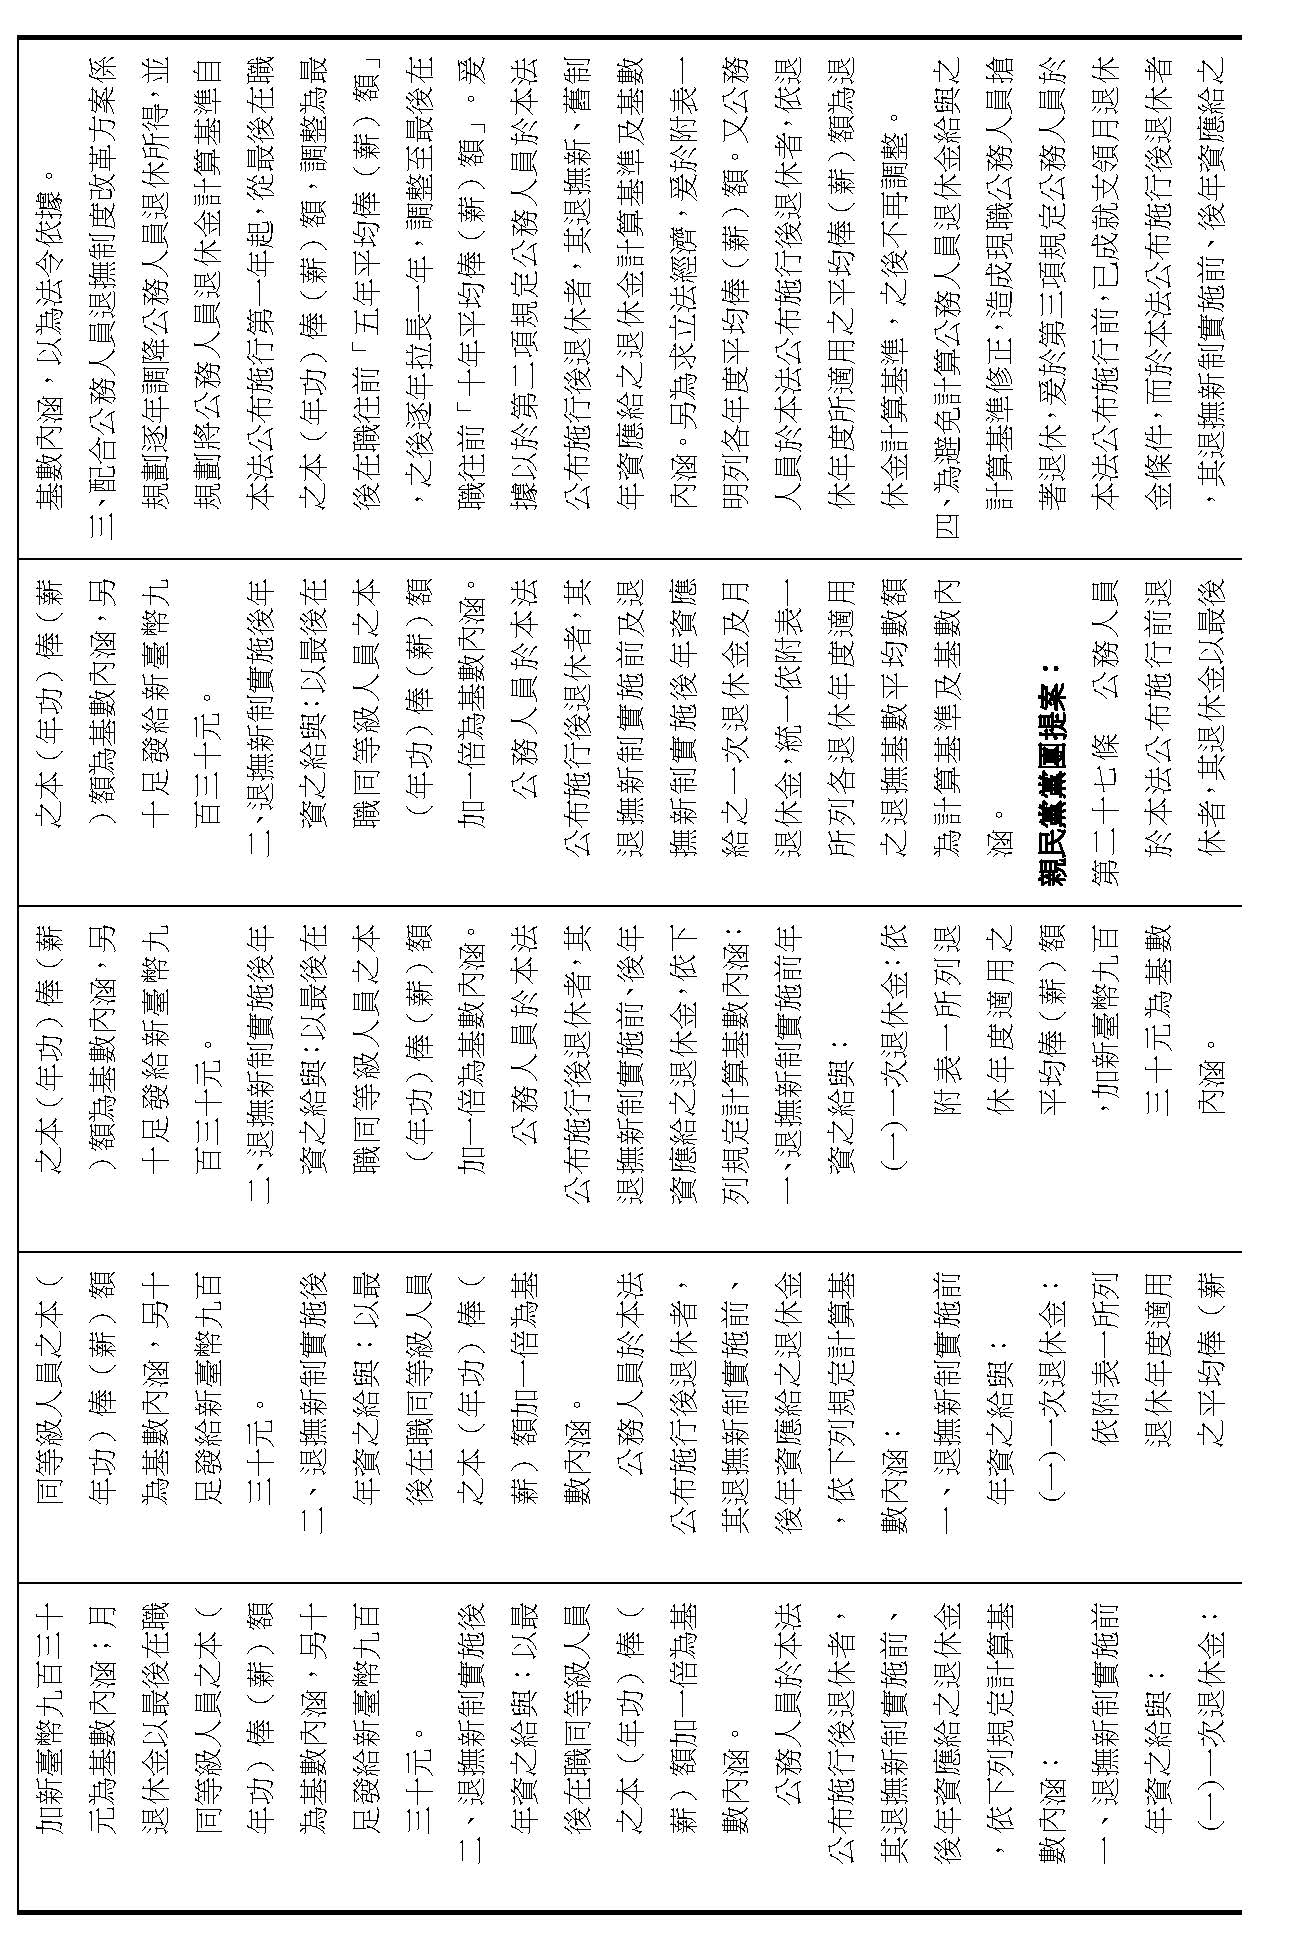 加新臺幣九百三十
元為基數內涵；月
退休金以最後在職
同等級人員之本（
年功）俸（薪）額
為基數內涵，另十
足發給新臺幣九百
三十元。
二、退撫新制實施後
年資之給與：以最
後在職同等級人員
之本（年功）俸（
薪）額加一倍為基
數內涵。
公務人員於本法
公布施行後退休者，
其退撫新制實施前、
後年資應給之退休金
，依下列規定計算基
數內涵：
一、退撫新制實施前
年資之給與：
(一)一次退休金：
同等級人員之本（
年功）俸（薪）額
為基數內涵，另十
足發給新臺幣九百
三十元。
二、退撫新制實施後
年資之給與：以最
後在職同等級人員
之本（年功）俸（
薪）額加一倍為基
數內涵。
公務人員於本法
公布施行後退休者，
其退撫新制實施前、
後年資應給之退休金
，依下列規定計算基
數內涵：
一、退撫新制實施前
年資之給與：
(一)一次退休金：
依附表一所列
退休年度適用
之平均俸（薪
之本（年功）俸（薪
）額為基數內涵，另
十足發給新臺幣九
百三十元。
二、退撫新制實施後年
資之給與：以最後在
職同等級人員之本
（年功）俸（薪）額
加一倍為基數內涵。
公務人員於本法
公布施行後退休者，其
退撫新制實施前、後年
資應給之退休金，依下
列規定計算基數內涵：
一、退撫新制實施前年
資之給與：
(一)一次退休金：依
附表一所列退
休年度適用之
平均俸（薪）額
，加新臺幣九百
三十元為基數
內涵。
之本（年功）俸（薪
）額為基數內涵，另
十足發給新臺幣九
百三十元。
二、退撫新制實施後年
資之給與：以最後在
職同等級人員之本
（年功）俸（薪）額
加一倍為基數內涵。
公務人員於本法
公布施行後退休者，其
退撫新制實施前及退
撫新制實施後年資應
給之一次退休金及月
退休金，統一依附表一
所列各退休年度適用
之退撫基數平均數額
為計算基準及基數內
涵。
親民黨黨團提案：
第二十七條　公務人員
於本法公布施行前退
休者，其退休金以最後
基數內涵，以為法令依據。
三、配合公務人員退撫制度改革方案係
規劃逐年調降公務人員退休所得，並
規劃將公務人員退休金計算基準自
本法公布施行第一年起，從最後在職
之本（年功）俸（薪）額，調整為最
後在職往前「五年平均俸（薪）額」
，之後逐年拉長一年，調整至最後在
職往前「十年平均俸（薪）額」。爰
據以於第二項規定公務人員於本法
公布施行後退休者，其退撫新、舊制
年資應給之退休金計算基準及基數
內涵。另為求立法經濟，爰於附表一
明列各年度平均俸（薪）額。又公務
人員於本法公布施行後退休者，依退
休年度所適用之平均俸（薪）額為退
休金計算基準，之後不再調整。
四、為避免計算公務人員退休金給與之
計算基準修正，造成現職公務人員搶
著退休，爰於第三項規定公務人員於
本法公布施行前，已成就支領月退休
金條件，而於本法公布施行後退休者
，其退撫新制實施前、後年資應給之